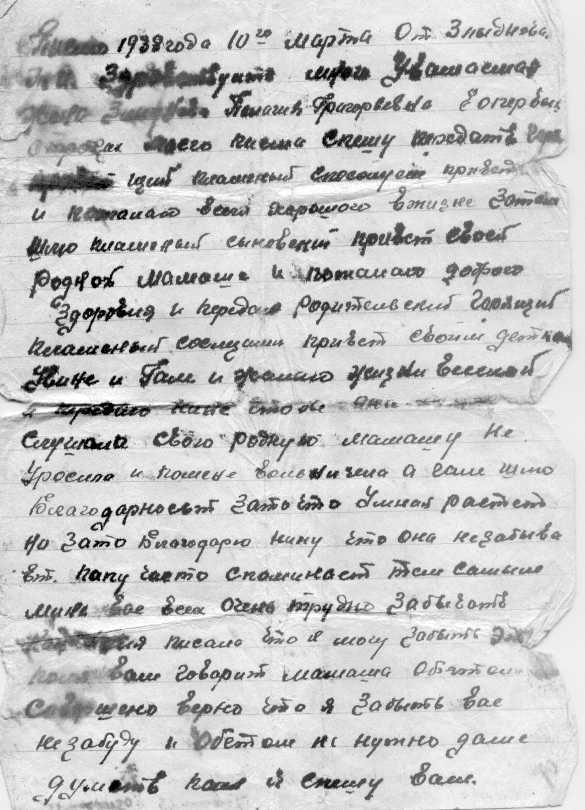 Письмо 1938 года 10го Марта От Зныбнева
Здравствуйте много Уважаемая
Жена Пелагия Григорьевна Вопервых
строках моего письма спешу передать
щий пламеный привет
и пожелаю всего хорошого вжизне Затем
Шлю пламеный сыновский привет своей
родной Мамаше и пожелаю доброго
Здоровия и передаю Родительский Горящий
пламеный привет своим деткам
Нине и Гале и желаю жизни веселой
и передаю Нине чтобы она
слушала свого родную мамашу не
Уросила и помене вольничела а Гале шлю
Благодарность Зато что Умная растет
Но Зато Благодарю Нину что она незабыва
ет папу часто споминает тем самым
мине вас всех очень трудно Забычать
писала что я могу Забыть
вам говорит мамаша Обетом
Совершено верно что я Забыть вас
незабуду и Обетом не нужно даже
думать и спешу вам.